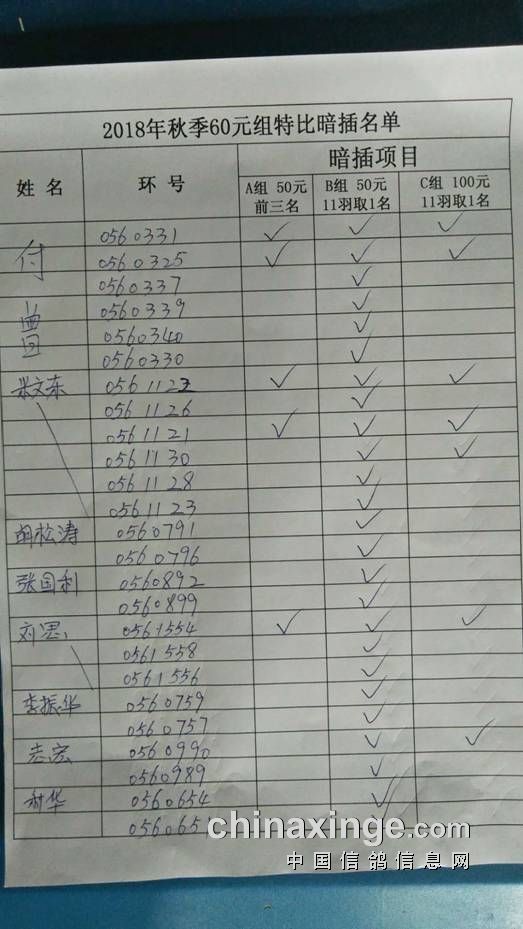 2018年秋季60元组特比暗插名单
姓名 环号 暗插项目
A组 50元 前三名 B组 50元 11羽取1名 C组 100元 11羽取1名
付 0560331 ✓ ✓ ✓
0560325 ✓ ✓ ✓
0560337 ✓
0560339 ✓
0560340 ✓
0560330 ✓
张文东 0561123 ✓ ✓ ✓
0561126 ✓
0561121 ✓ ✓ ✓
0561130 ✓ ✓
0561128 ✓
0561123 ✓
胡松涛 0560791 ✓
0560796 ✓
张国利 0560892 ✓
0560899 ✓
刘 0561554 ✓ ✓ ✓
0561558 ✓
0561556 ✓
李振华 0560759 ✓
0560757 ✓
志宏 0560990 ✓ ✓
0560989 ✓
树华 0560654 ✓
056065
chinaxinge.com
中国信鸽信息网